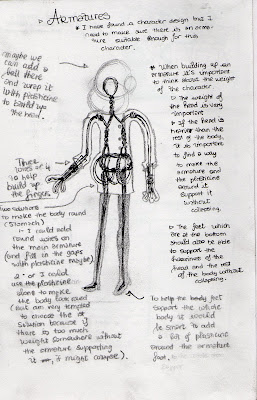 → Armatures
* I have found a character design but I
need to make sure there is an arm-
ture suitable enough for this
character.
Maybe we
can add a
ball there
and wrap it
with plasticine
to build up
the head.
* When building up an
armature it's important
to think about the weight
of the character
→ The weight of
the head is very
important
→ If the head is
heavier than the
rest of the body,
it is important
to find a way
to make
the armature
and the plasticine
around it
support it
without
collapsing.
Three
wires or 4
to help
build up
the fingers
Two solutions
to make the body round
(Stomach)
1- I could add
round wires on
the main armature
(and fill in the gaps
with plasticine maybe)
2- or I could
use the plasticine
alone to make
the body look round
(but am very tempted
to choose the 1st
solution because if
there is too much
weight somewhere without
the armature supporting
it, it might collapse).
→ The feet which
are at the bottom
should also be able
to support the
heaviness of the
and the rest
of the body without
collapsing.
To help the body feet
support the whole
body it would
be smart to add
a lot of plasticine
around the armature
foot.